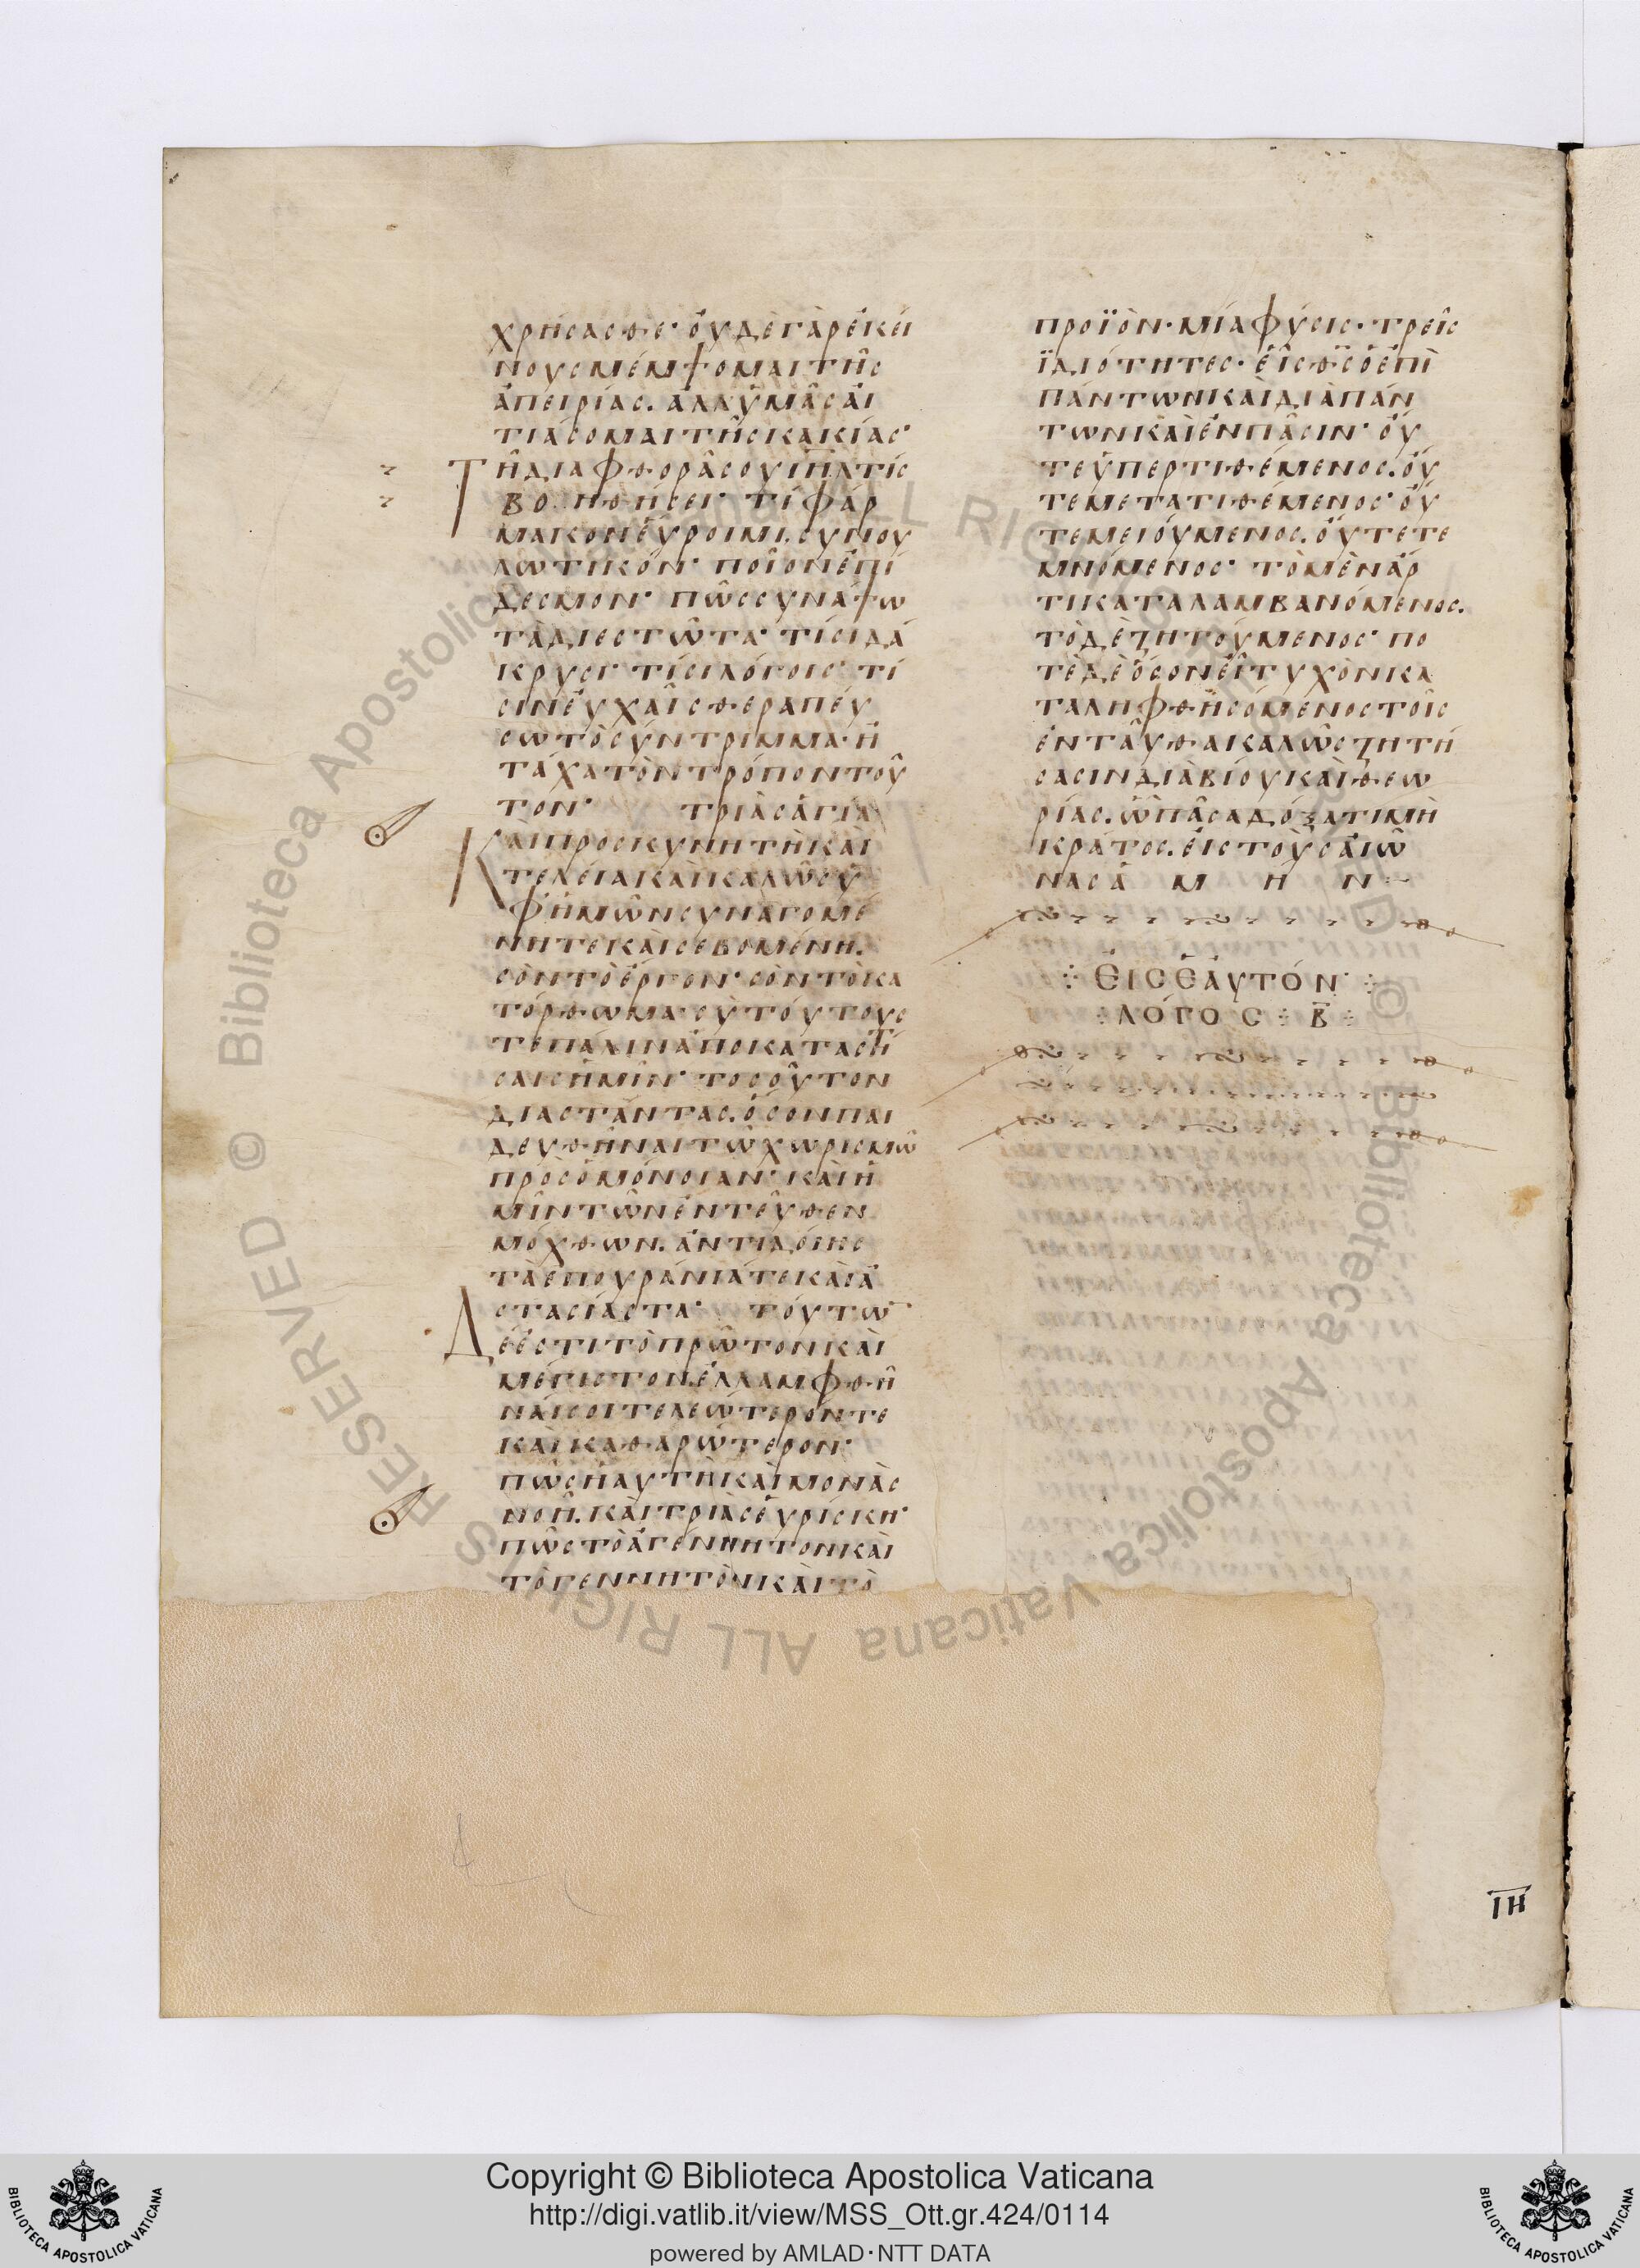 χρήσασθε· ὀυδὲ γὰρ ἐκεί
νους μέμψομαι τῆς
ἀπειρίας. ἀλλ' ὑμᾶς ἀι
τιάσομαι τῆς κακίας·
Τῆ διαφθορᾶ σου ιηλ τίς
βοηθήσει· τί φάρ
μακον ἑύροιμι. συνου
λωτικόν· ποῖον ἐπί
δεσμον· πῶς συνάψω
τὰ διεστῶτα· τίσι δά
κρυσι· τίσι λόγοις· τί
σιν ἐυχαῖς θεραπέυ
σω τὸ σύντριμμα· ἢ
τάχα τὸν τρόπον τοῦ
τον· τριὰς ἁγία
Κὰι προσκυνητὴ κὰι
τελεία κὰι καλῶς ὑ
φ' ἡμῶν συναγομέ
νη τε κὰι σεβομένη.
σὸν τὸ ἔργον· σὸν τὸ κα
τόρθωμα· σὺ τούτους
τε πάλιν ἀποκαταστή
σαις ἡμῖν· τοσοῦτον
διαστάντας. ὅσον παι
δευθῆναι τῶ χωρισμῶ
πρὸς ὁμόνοιαν· κὰι ἡ
μῖν τῶν ἐντεῦθεν
μόχθων. ἀντιδόιης
τὰ επουράνιά τε κὰι ἀ
στασίαστα· τούτω
Δὲ ἐστι τὸ πρῶτον κὰι
μέγιστον. ἐλλαμφθῆ
ναί σοι τελεώτερόν τε
κὰι καθαρώτερον·
πῶς ἡ αυτὴ κὰι μονὰς
νοῆ. κὰι τριὰς ἑυρίσκη·
πῶς τὸ ἀγέννητον κὰι
τὸ γεννητὸν κὰι τὸ
προϊὸν· μία φύσις· τρεῖς
ϊδιότητες· εἷς θς ὁ ἐπὶ
πάντων κὰι διὰ πάν
των κὰι ἐν πᾶσιν· ὄυ
τε ὑπερτιθέμενος. όυ
τε μετατιθέμενος· ὄυ
τε μειόυμενος. ὄυτε τε
μνόμενος· τὸ μὲν ἄρ
τι καταλαμβανόμενος.
τὸ δὲ ζητούμενος· πο
τὲ δὲ ὅσον εἶ τυχὸν κα
ταληφθησόμενος τοῖς
ἐνταῦθα καλῶς ζητή
σασιν διὰ βίου κὰι θεω
ρίας. ὧ πᾶσα δόξα τιμὴ
κράτος. ἐις τοὺς ἀιῶ
νας ἀμήν
ἘΙΣ ἙΑΥΤΌΝ
ΛΌΓΟΣ Β
ΙΗ
Copyright © Biblioteca Apostolica Vaticana
http://digi.vatlib.it/view/MSS_Ott.gr.424/0114
powered by AMLAD·NTT DATA
BIBLIOTECA APOSTOLICA VATICANA
BIBLIOTECA APOSTOLICA VATICANA
© Biblioteca Apostolica Vaticana ALL RIGHTS RESERVED